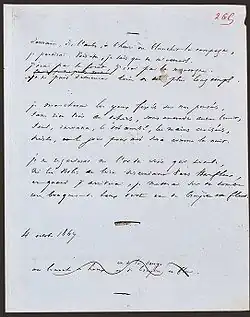 Demain, dès l'aube, à l'heure où blanchit la campagne,
je partirai. Vois-tu, je sais que tu m'attends.
J'irai par la forêt, j'irai par la montagne.
je ne puis demeurer loin de toi plus longtemps.
je marcherai les yeux fixés sur mes pensées,
sans rien voir au dehors, sans entendre aucun bruit,
seul, inconnu, le dos courbé, les mains croisées,
triste, et le jour pour moi sera comme la nuit.
je ne regarderai ni l'or du soir qui tombe,
ni les voiles au loin descendant vers Harfleur,
et quand j'arriverai, je mettrai sur ta tombe
un bouquet de houx vert et de bruyère en fleur.
4 oct. 1847